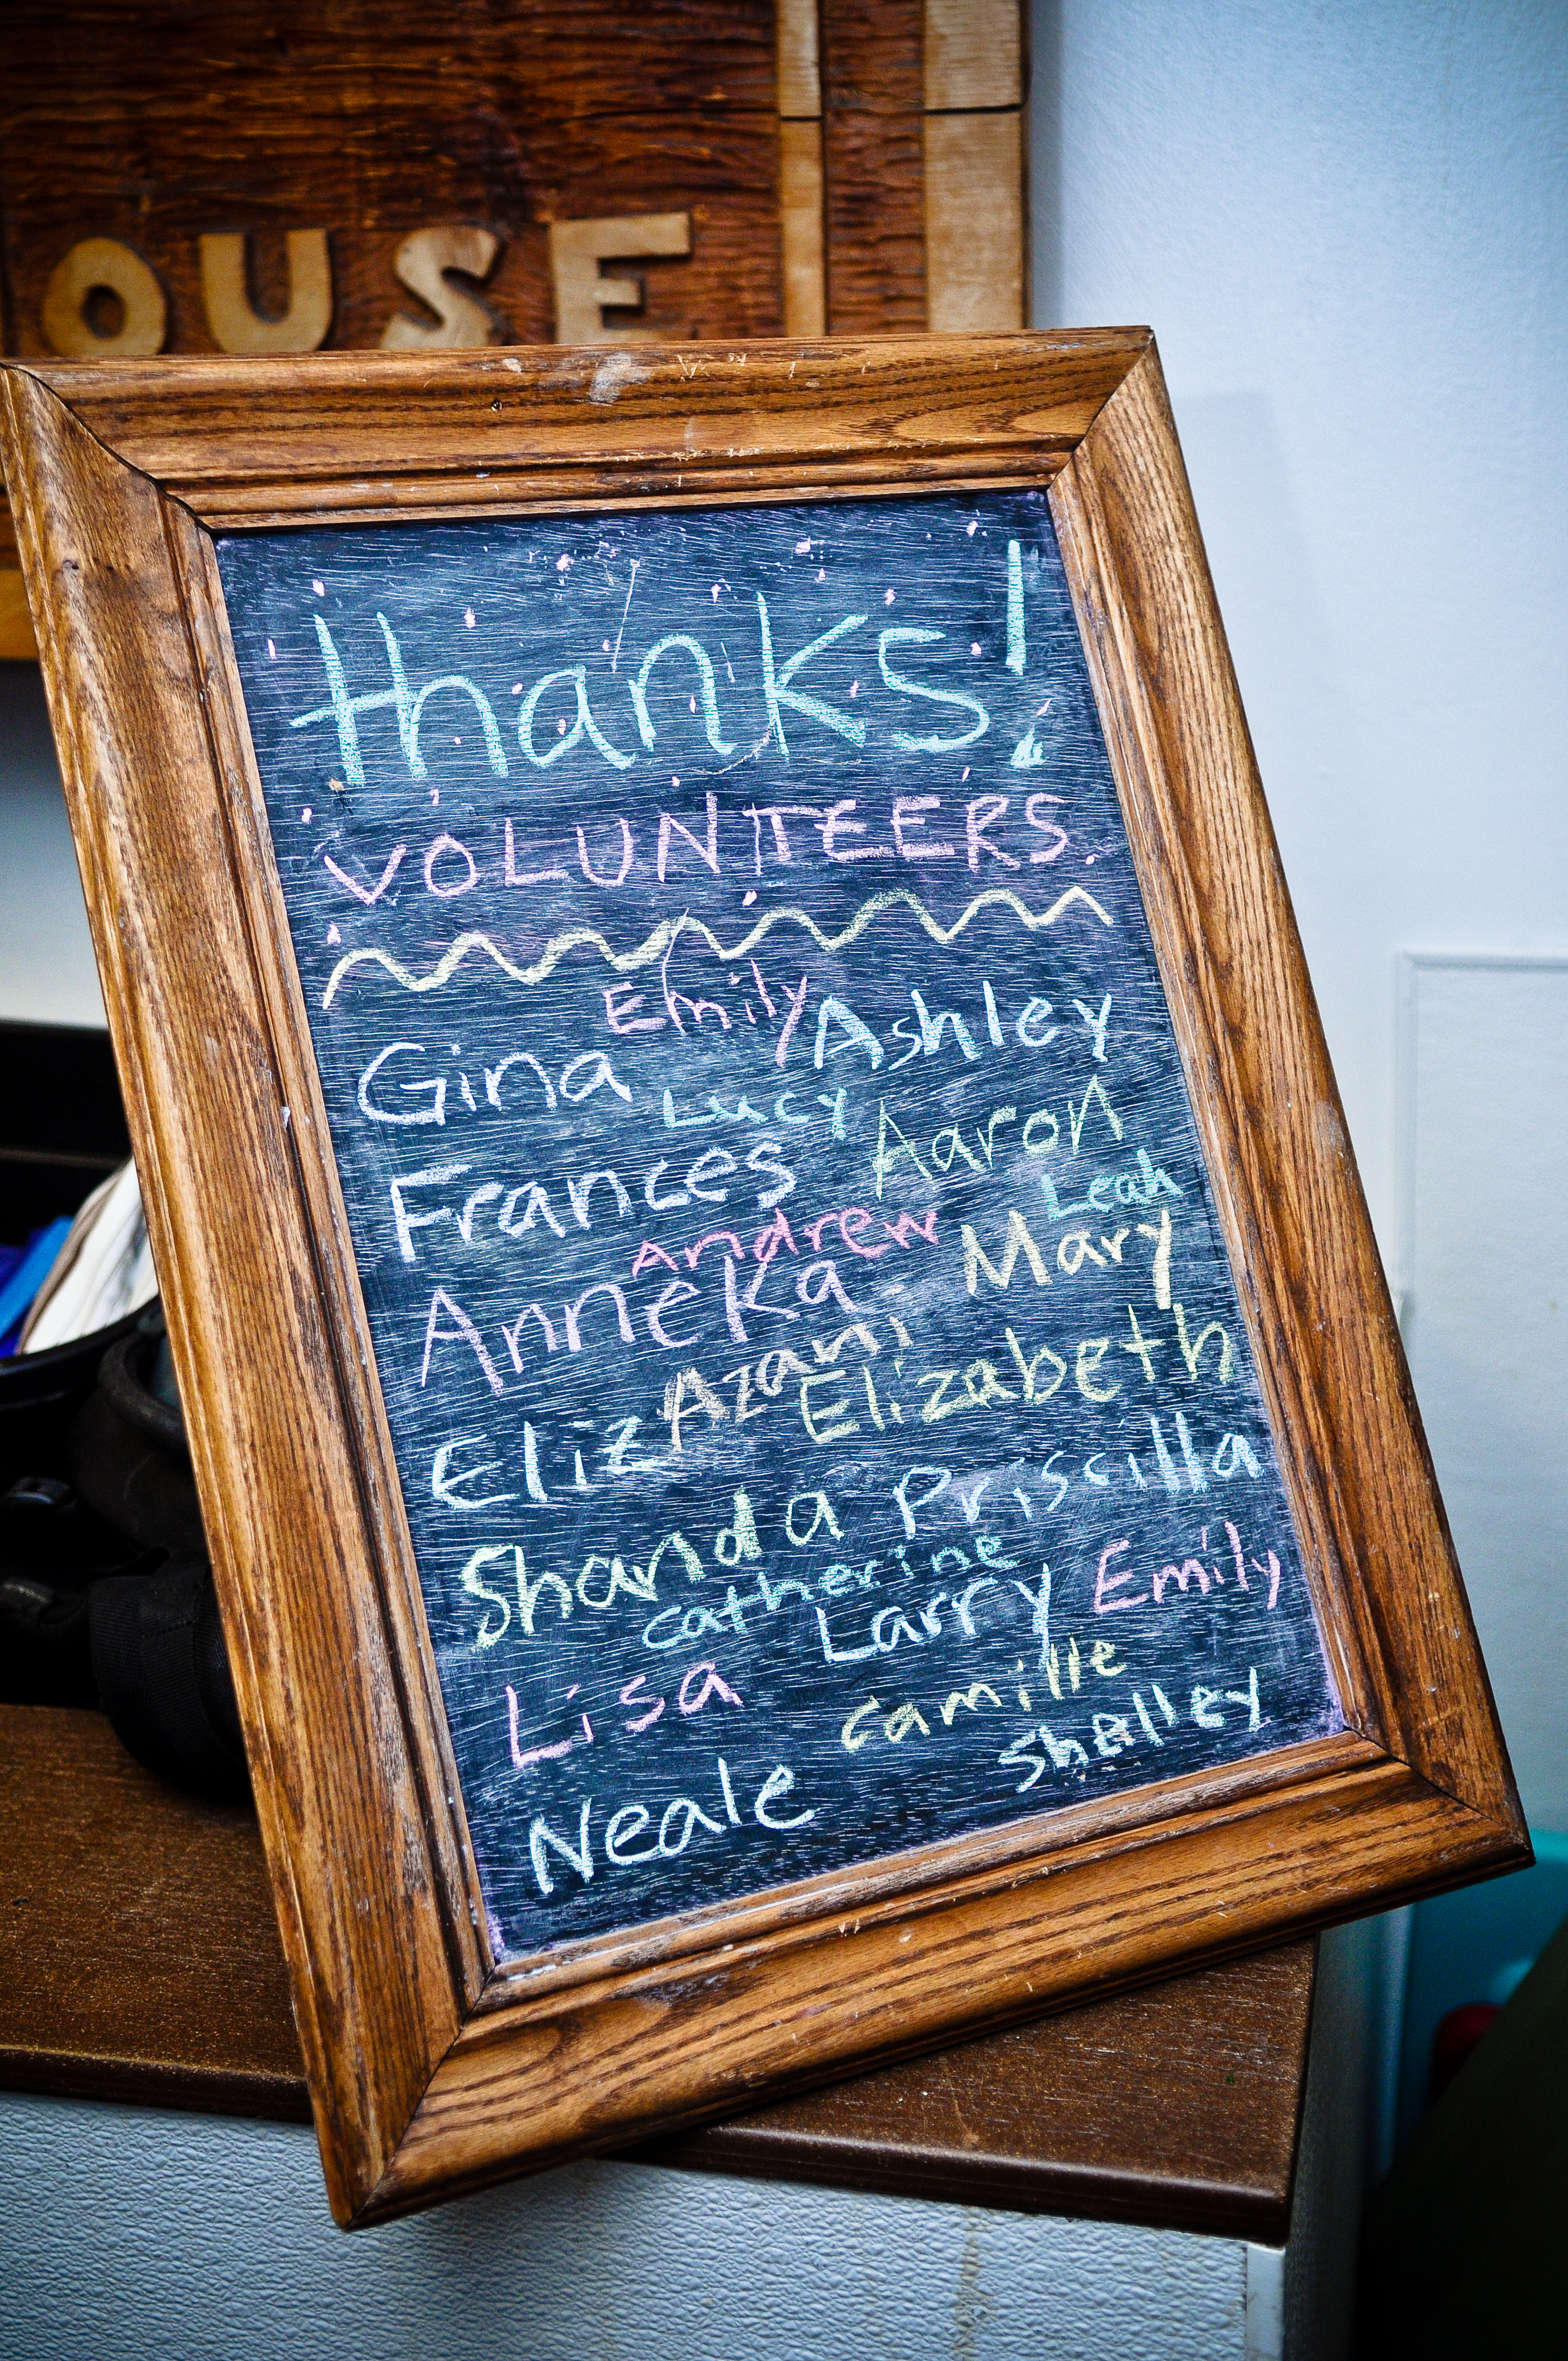 OUSE
thanks!
VOLUNTEERS
Emily
Gina Ashley
Lucy
Frances Aaron
Leah
Andrew
Anneka Mary
Azani
Eliz Elizabeth
Shanda Priscilla
catherine
Larry Emily
Lisa camille
Neale Shelley